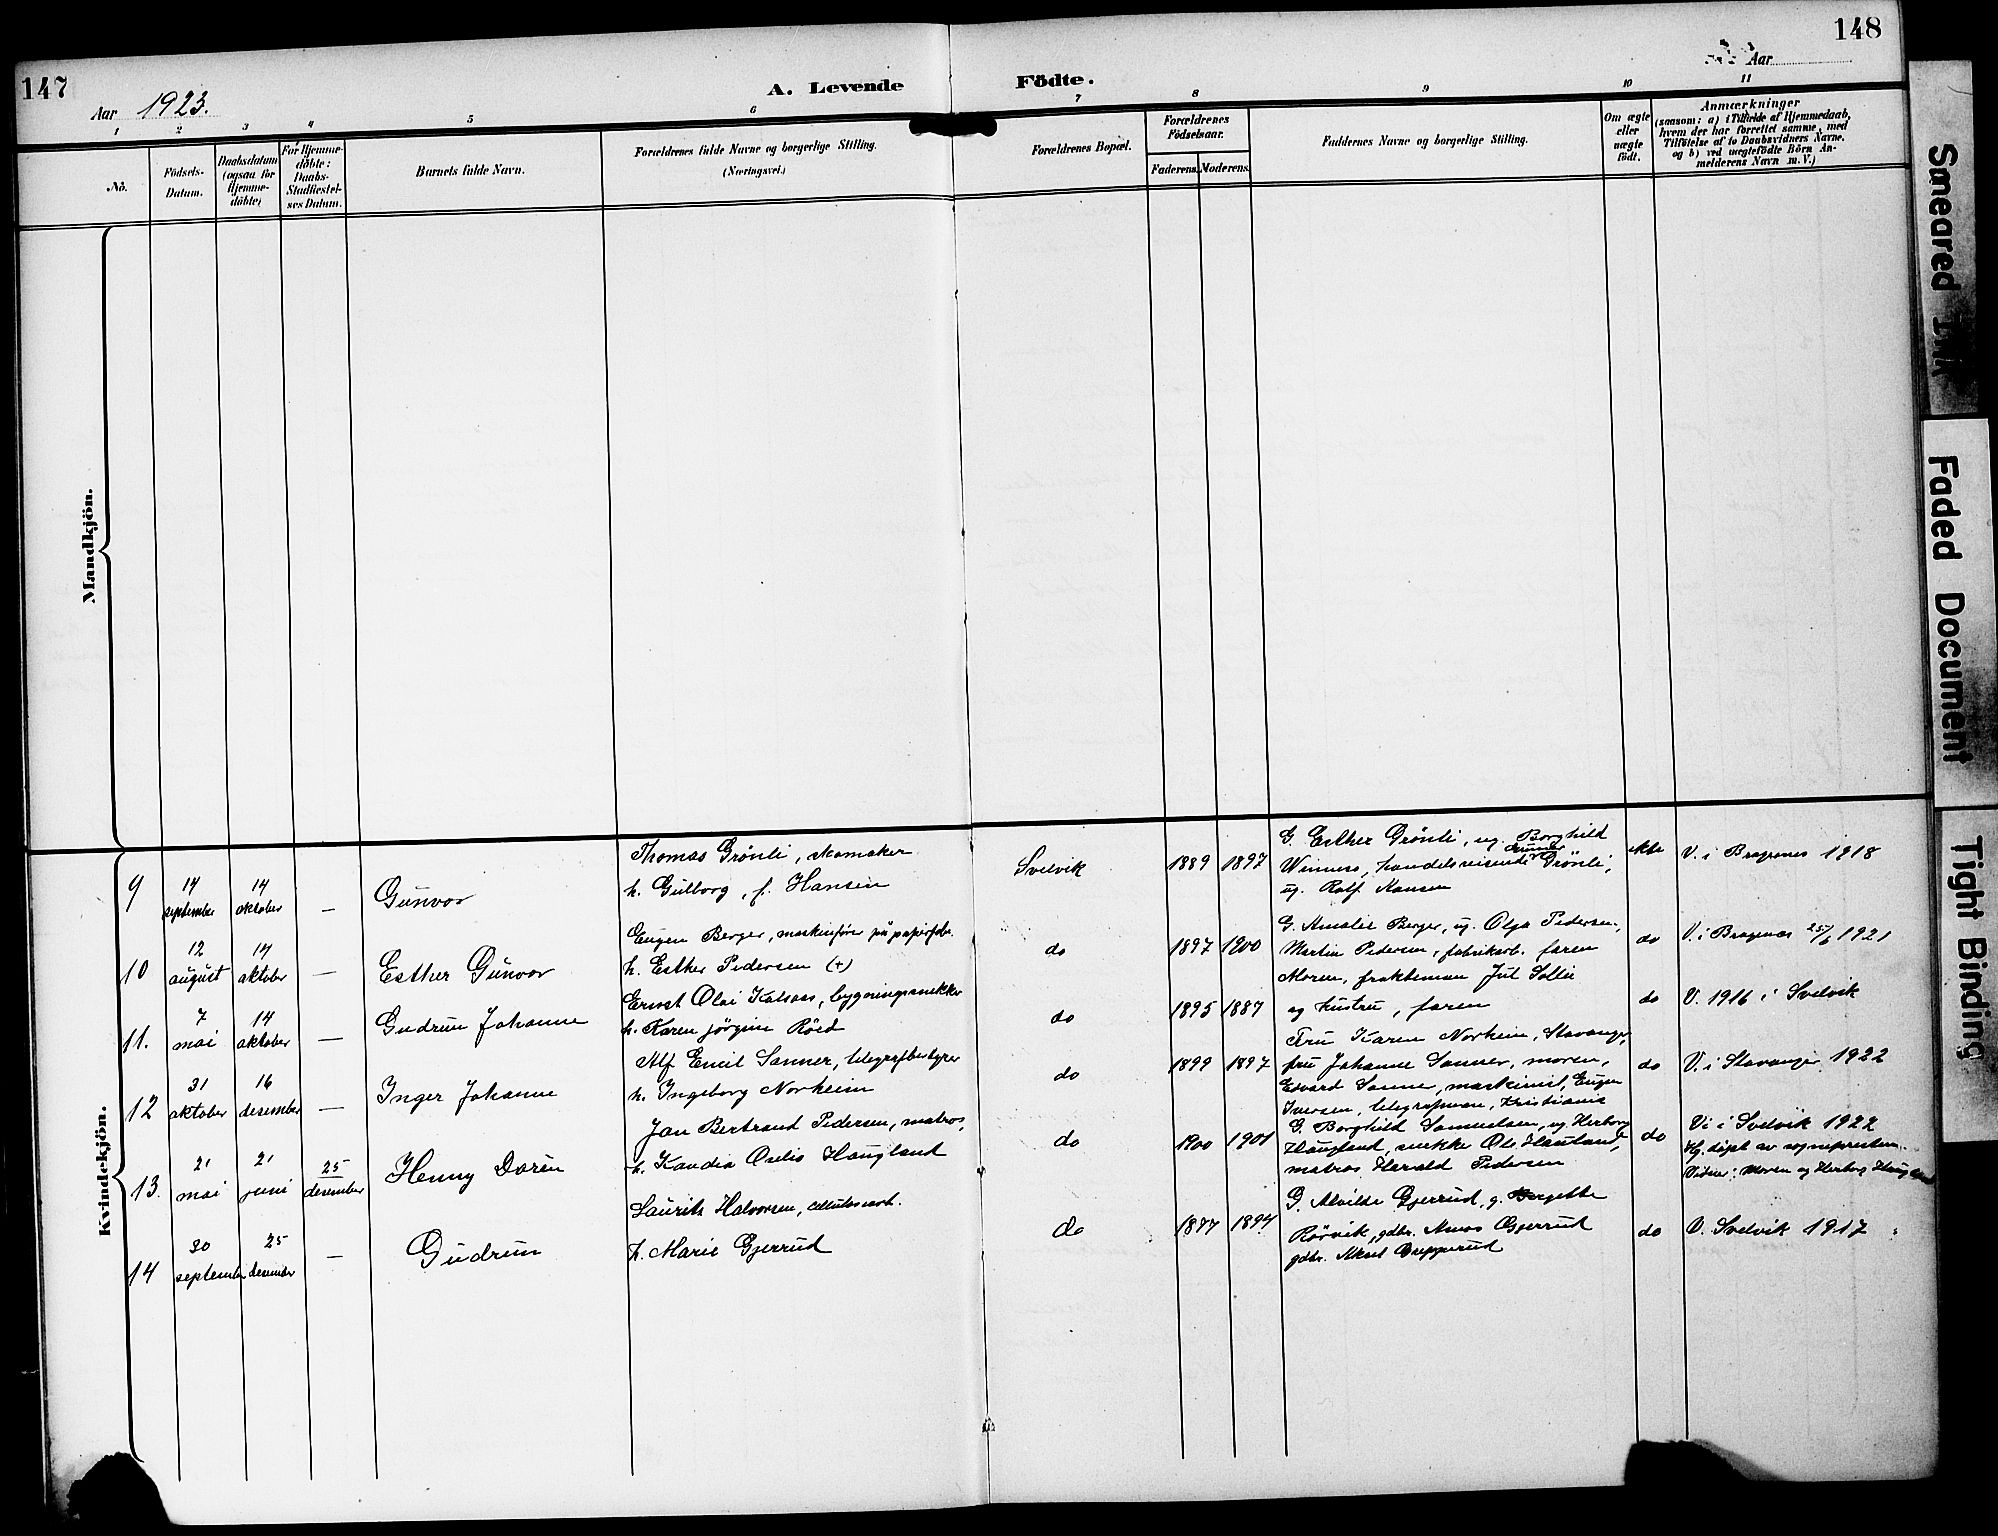 147
148
Aar 1923.
A. Levende Födte.
Aar
1 2 3 4 5 6 7 8 9 10 11
No.
Födsels-Datum.
Daabsdatum (ogsaa for Hjemmedöbte)
For Hjemmedöbte: Daabs-Stadfæstelses Datum.
Barnets fulde Navn.
Forældrenes fulde Navne og borgerlige Stilling.
(Næringsvei.)
Forældrenes Bopæl.
Forældrenes Födselsaar.
Faderens. Moderens.
Faddernes Navne og borgerlige Stilling.
Om ægte eller uægte födt.
Anmærkninger
(saasom: a) i Tilfælde af Hjemmedaab,
hvem der har forrettet samme, med
Tilföielse af to Daabsvidners Navne,
og b) ved uægtefödte Börn An-
melderens Navn m. V.)
Mandkjön.
Kvindekjön.
9
14 september
14 oktober
—
Gunvor
Thomas Grönli, skomaker
h. Gulborg, f. Hansen
Svelvik
1889 1897
G. Esther Grönli, ug. Borghild
Winness, handelsreisende Gunnar Grönli,
ug. Rolf Hansen
ekte
V. i Bragenes 1918
10
12 august
14 oktober
—
Esther Gunvor
Eugen Berger, maskinfører på papirfabr.
h. Esther Pedersen (+)
do
1897 1900
G. Amalie Berger, ug. Olga Pedersen,
Martin Pedersen, fabrikarb. faren
do
V. i Bragenes 25/6 1921
11.
7 mai
14 oktober
—
Gudrun Johanne
Ernst Olai Kalsaas, bygningssnekker
h. Karen Jörgine Röed
do
1895 1887
Moren, fraktemann Jul Sollie
og hustru, faren
do
V. 1916 i Svelvik
12
31 oktober
16 desember
—
Inger Johanne
Alf Emil Sanner, telegrafbestyrer
h. Ingeborg Norheim
do
1899 1897
Fru Karen Norheim, Stavanger,
fru Johanne Sanner, moren,
Edvard Sanne, maskinist, Eugen
Iversen, telegrafmann, Kristiania
do
V. i Stavanger 1922
13.
21 mai
21 juni
25 desember
Henny Doren
Jan Bertrand Pedersen, matros,
h. Kandia Oselia Haugland
do
1900 1901
G. Borghild Samuelsen, ug Herborg
Haugland, snekker Ole Haugland,
matros Harald Pedersen
do
Vi i Svelvik 1922
Hj. døpt av sognepresten.
Vidner: Moren og Herborg Haugland
14
30 september
25 desember
—
Gudrun
Laurits Halvorsen, cellulosearb.
h. Marie Gjerrud
do
1877 1894
G. Alvilde Gjerrud, g. Bergette
Rörvik, gdbr. Anus Gjerrud
gdbr. Aksel Grepperud
do
V. Svelvik 1917
Smeared Ink
Faded Document
Tight Binding